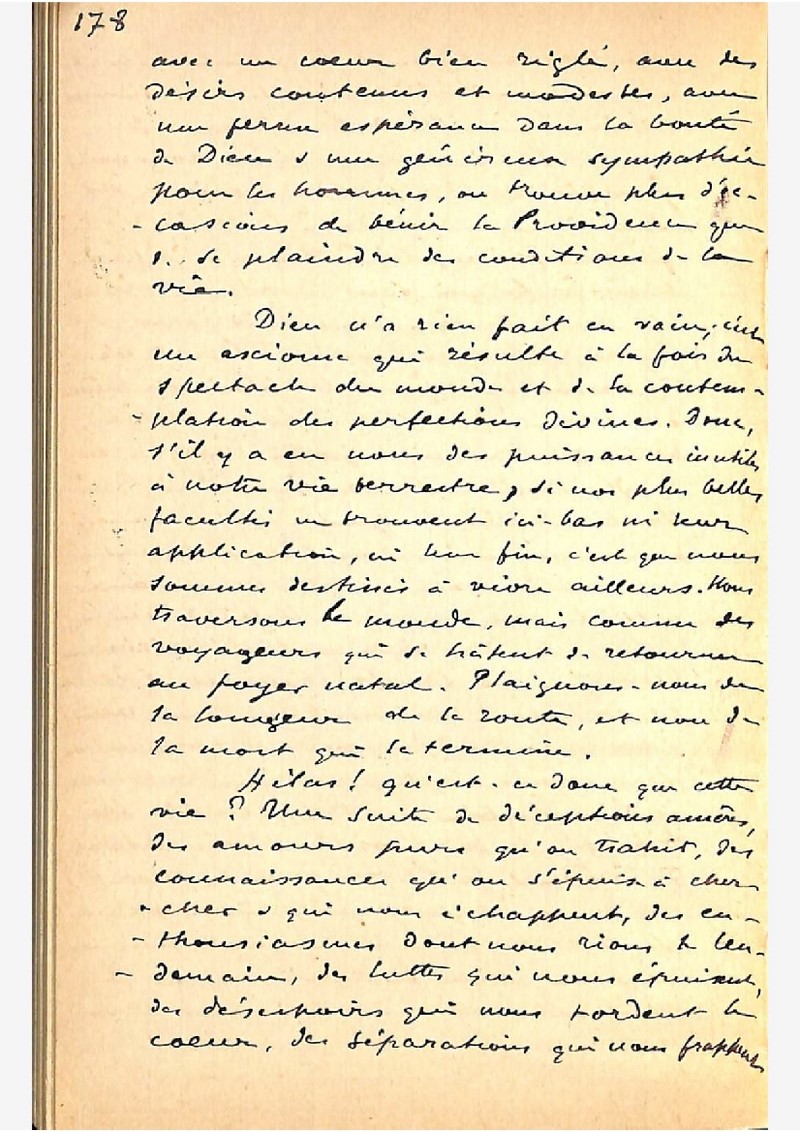 178
avec un coeur bien réglé, avec des
désirs contenus et modestes, avec
une ferme espérance dans la bonté
de Dieu & une généreuse sympathie
pour les hommes, on trouve plus d'oc-
- casions de bénir la Providence que
de se plaindre des conditions de la
vie.
Dieu n'a rien fait en vain; c'est
un axiome qui résulte à la fois du
spectacle du monde et de la contem-
- plation des perfections divines. Donc,
s'il y a en nous des puissances inutiles
à notre vie terrestre, si nos plus belles
facultés ne trouvent ici-bas ni leur
application, ni leur fin, c'est que nous
sommes destinés à vivre ailleurs. Nous
traversons le monde, mais comme des
voyageurs qui se hâtent de retourner
au foyer natal. Plaignons-nous de
la longueur de la route, et non de
la mort qui la termine.
Hélas! qu'est-ce donc que cette
vie ? Une suite de déceptions amères,
des amours purs qu'on trahit, des
connaissances qu'on s'épuise à cher
- cher & qui nous échappent, des en-
- thousiasmes dont nous rions le len-
- demain, des luttes qui nous épuisent,
des désespoirs qui nous tordent le
coeur, des séparations qui nous frappent